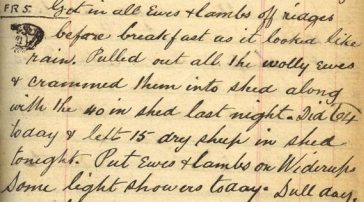 FRS. Got in all Ewes & Lambs off ridges
before breakfast as it looked like
rain. Pulled out all the wolly Ewes
& crammed them into shed along
with the 40 in shed last night. Did 64
today & left 15 dry sheep in shed
tonight. Put Ewes & Lambs on
Some light showers today. Dull day